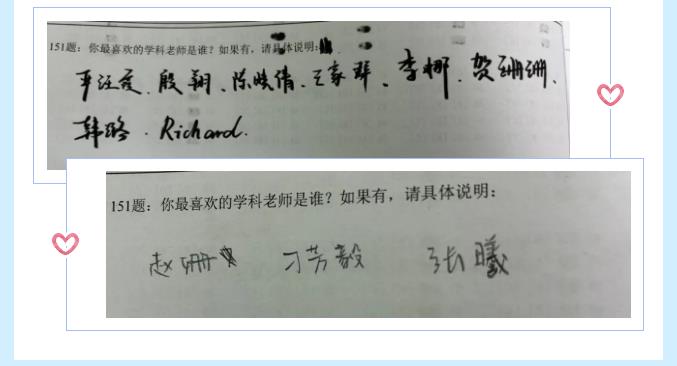 151题：你最喜欢的学科老师是谁？如果有，请具体说明：
殷翔、陈 倩、王家群、李娜、贺珊珊、
韩璐、Richard.
151题：你最喜欢的学科老师是谁？如果有，请具体说明：
赵珊 刁芳毅 张曦